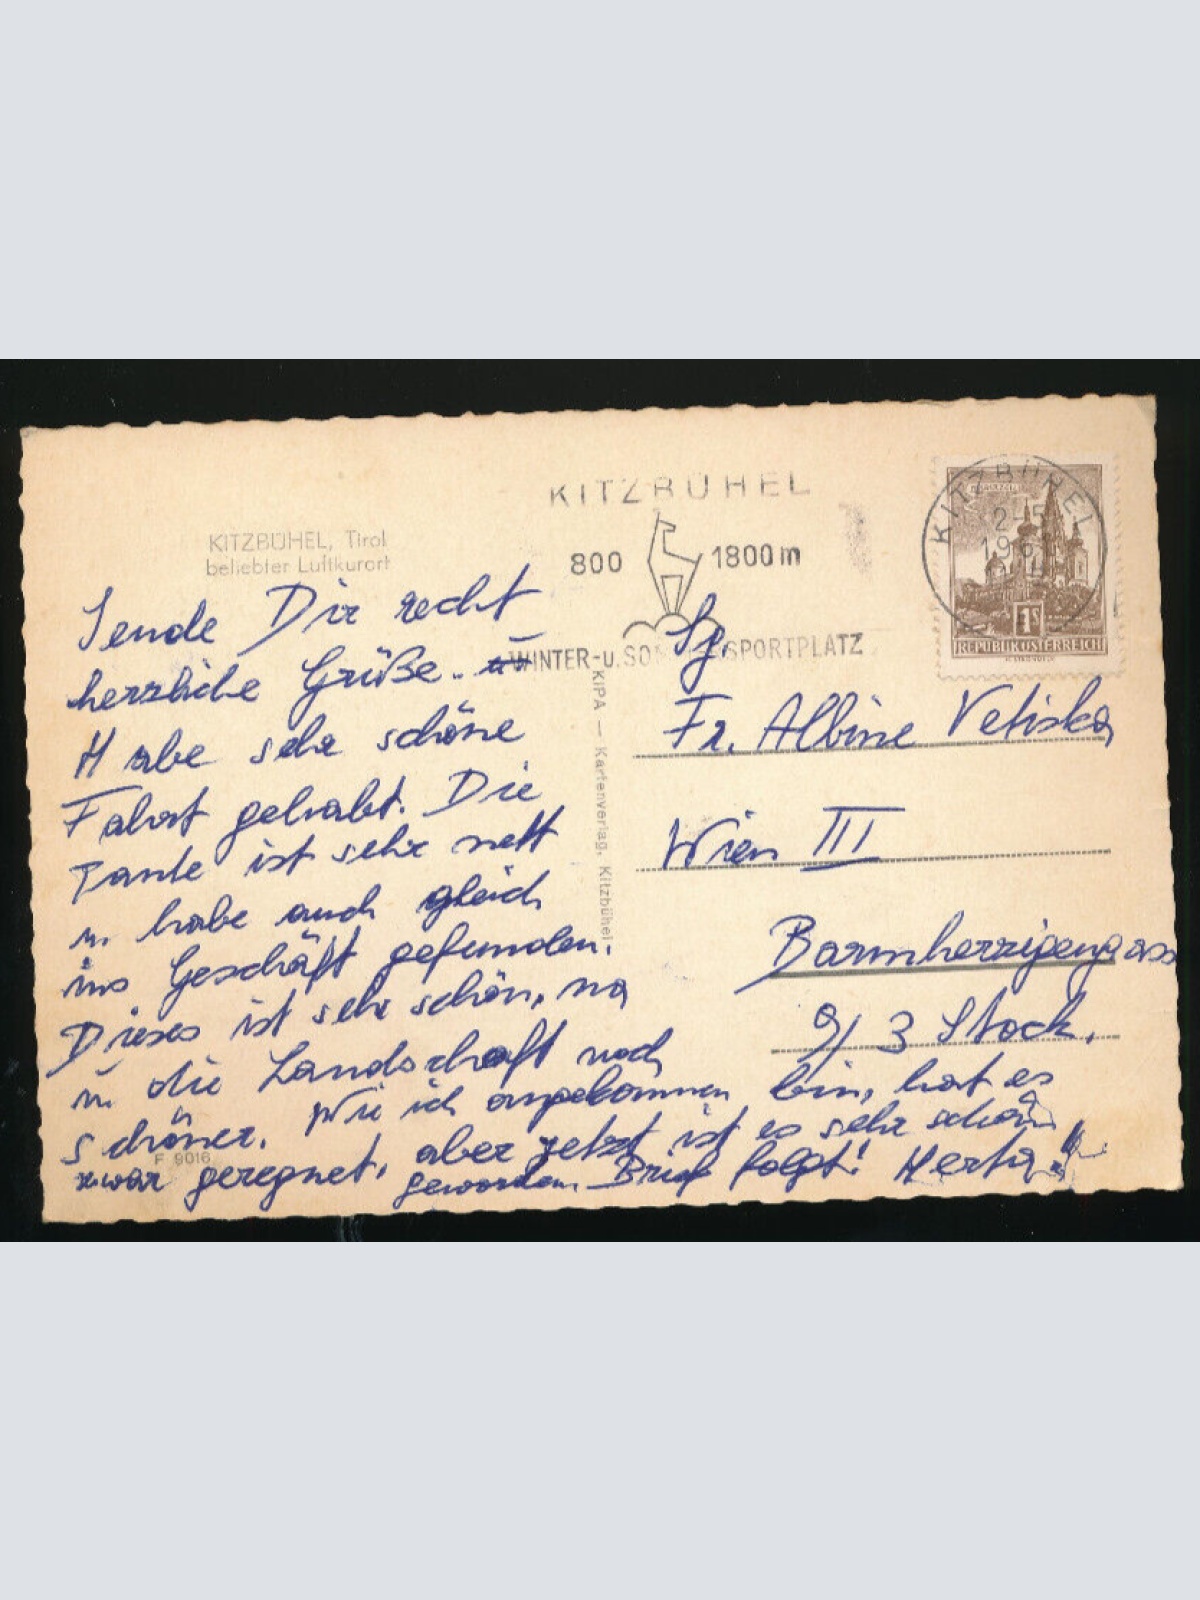 KITZBÜHEL, Tirol
beliebter Luftkurort
KITZBÜHEL
800 1800 m
WINTER-u. SO SPORTPLATZ
KITZBÜHEL
2-5
196
1S
REPUBLIK ÖSTERREICH
KIPA — Kartenverlag, Kitzbühel
F 9016
Sende Dir recht
herzliche Grüße.
Habe sehr schöne
Fahrt gehabt. Die
Tante ist sehr nett
u. habe auch gleich
ins Geschäft gefunden.
Dieses ist sehr schön, na
u. die Landschaft noch
schöner. Wie ich angekommen bin, hat es
zwar geregnet, aber jetzt ist es sehr schön
geworden. Brief folgt! Herta
Sg.
Fr. Albine Vetiska
Wien III
Barmherzigengass
9/3 Stock.